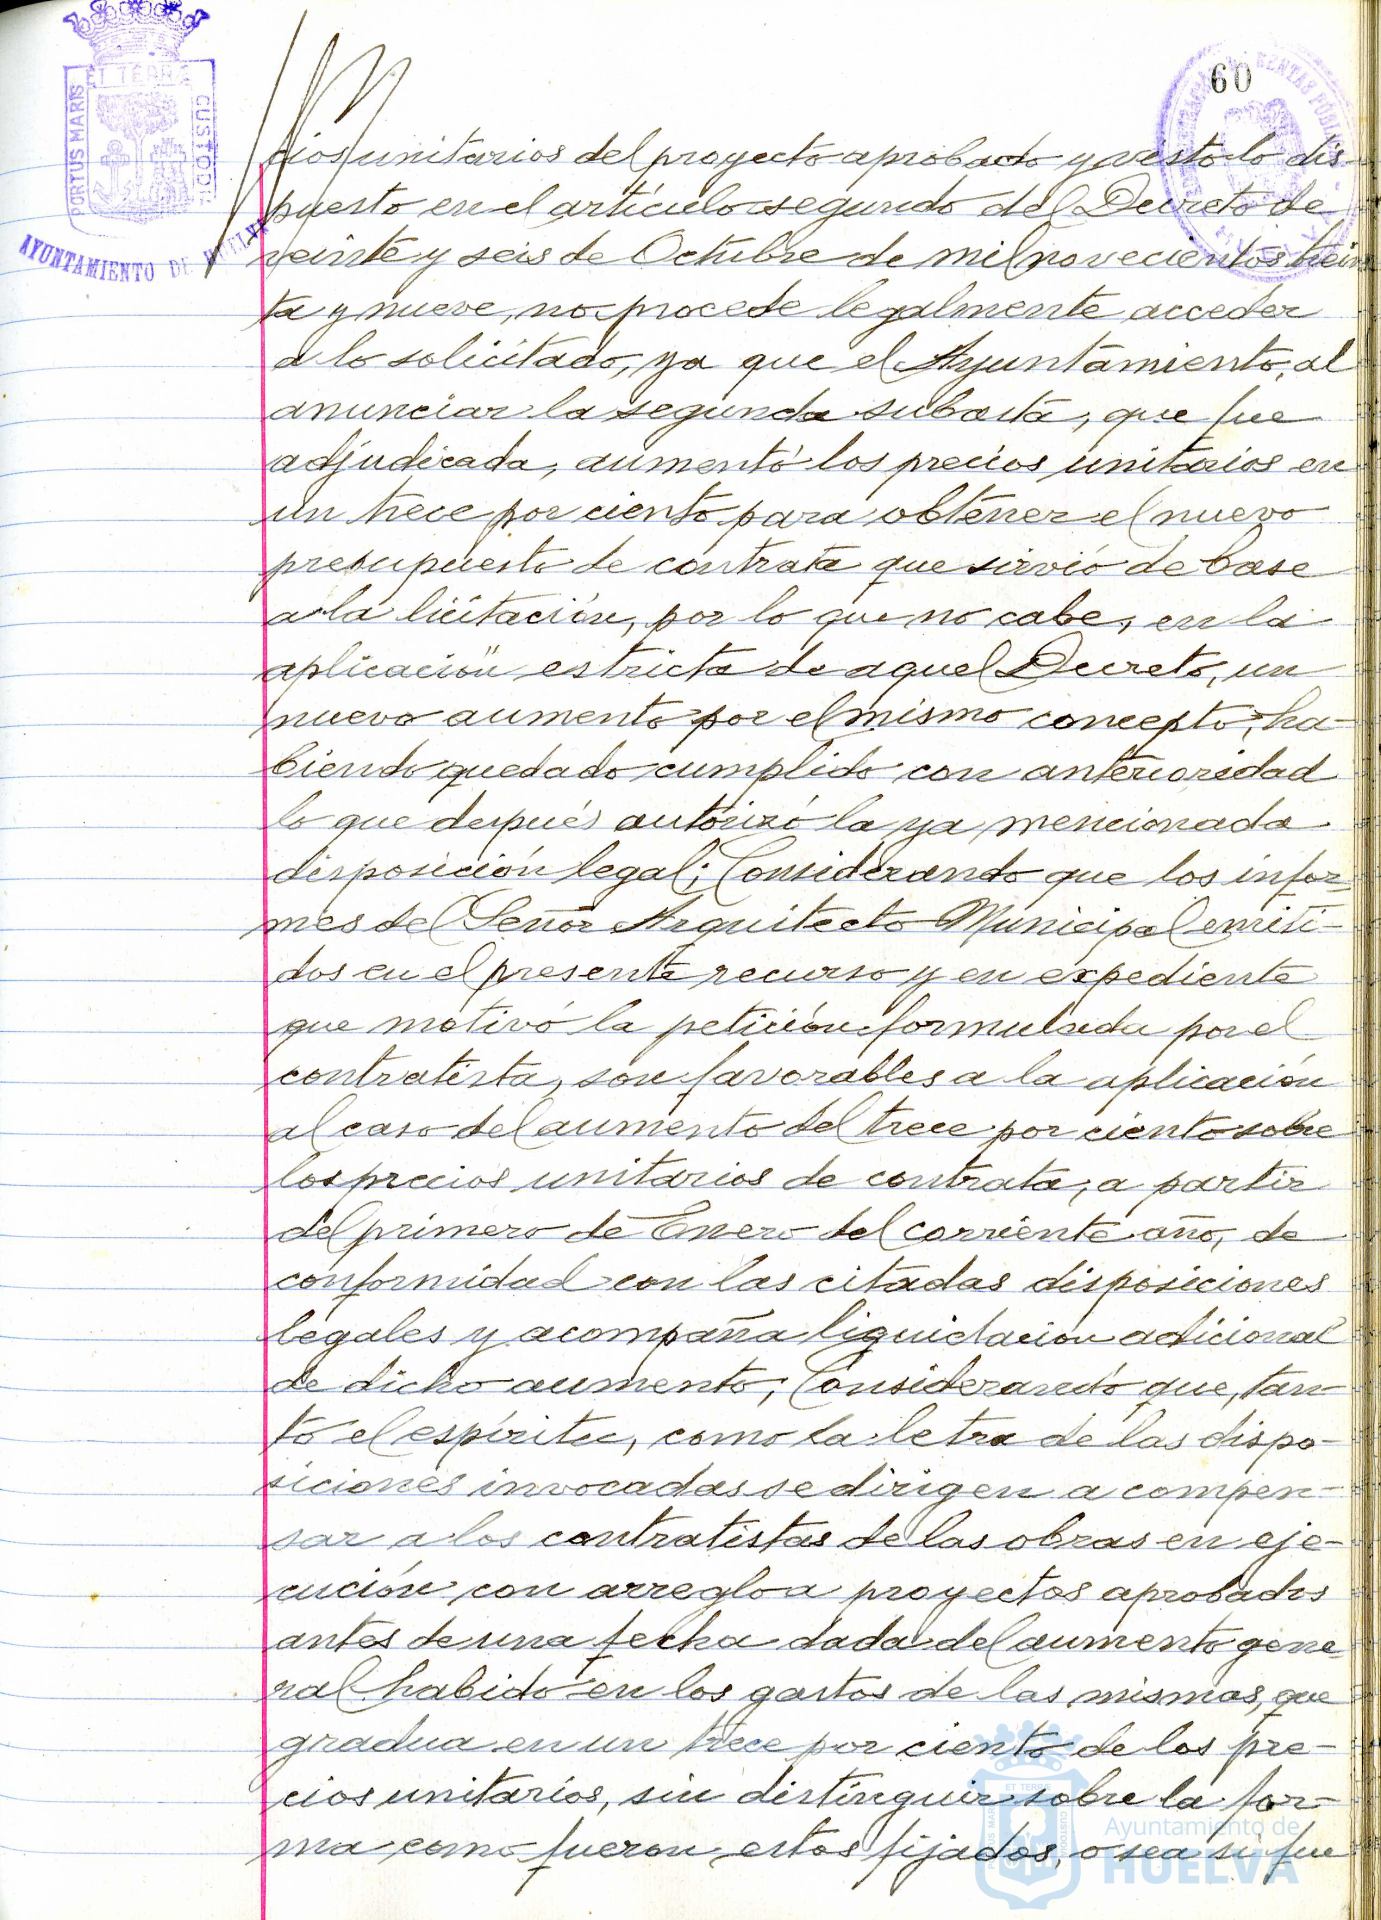 60
PORTUS MARIS
ET TERRÆ
CUSTODIA
AYUNTAMIENTO DE HUELVA
RENTAS PÚBLICAS
cios unitarios del proyecto aprobado y visto lo dis-
puesto en el artículo segundo del Decreto de
veinte y seis de Octubre de mil novecientos trein
ta y nueve, no procede legalmente acceder
a lo solicitado, ya que el Ayuntamiento, al
anunciar la segunda subasta, que fue
adjudicada, aumentó los precios unitarios en
un trece por ciento para obtener el nuevo
presupuesto de contrata que sirvió de base
a la licitación, por lo que no cabe, en la
aplicación estricta de aquel Decreto, un
nuevo aumento por el mismo concepto, ha-
biendo quedado cumplido con anterioridad
lo que después autorizó la ya mencionada
disposición legal; Considerando que los infor-
mes del Señor Arquitecto Municipal emiti-
dos en el presente recurso y en expediente
que motivó la petición formulada por el
contratista, son favorables a la aplicación
al caso del aumento del trece por ciento sobre
los precios unitarios de contrata, a partir
del primero de Enero del corriente año, de
conformidad con las citadas disposiciones
legales y acompaña liquidación adicional
de dicho aumento; Considerando que, tan-
to el espíritu, como la letra de las dispo-
siciones invocadas se dirigen a compen-
sar a los contratistas de las obras en eje-
cución con arreglo a proyectos aprobados
antes de una fecha dada del aumento gene-
ral habido en los gastos de las mismas, que
gradua en un trece por ciento de los pre-
cios unitarios, sin distinguir sobre la for-
ma como fueron estos fijados, o sea si fue
Ayuntamiento de
HUELVA